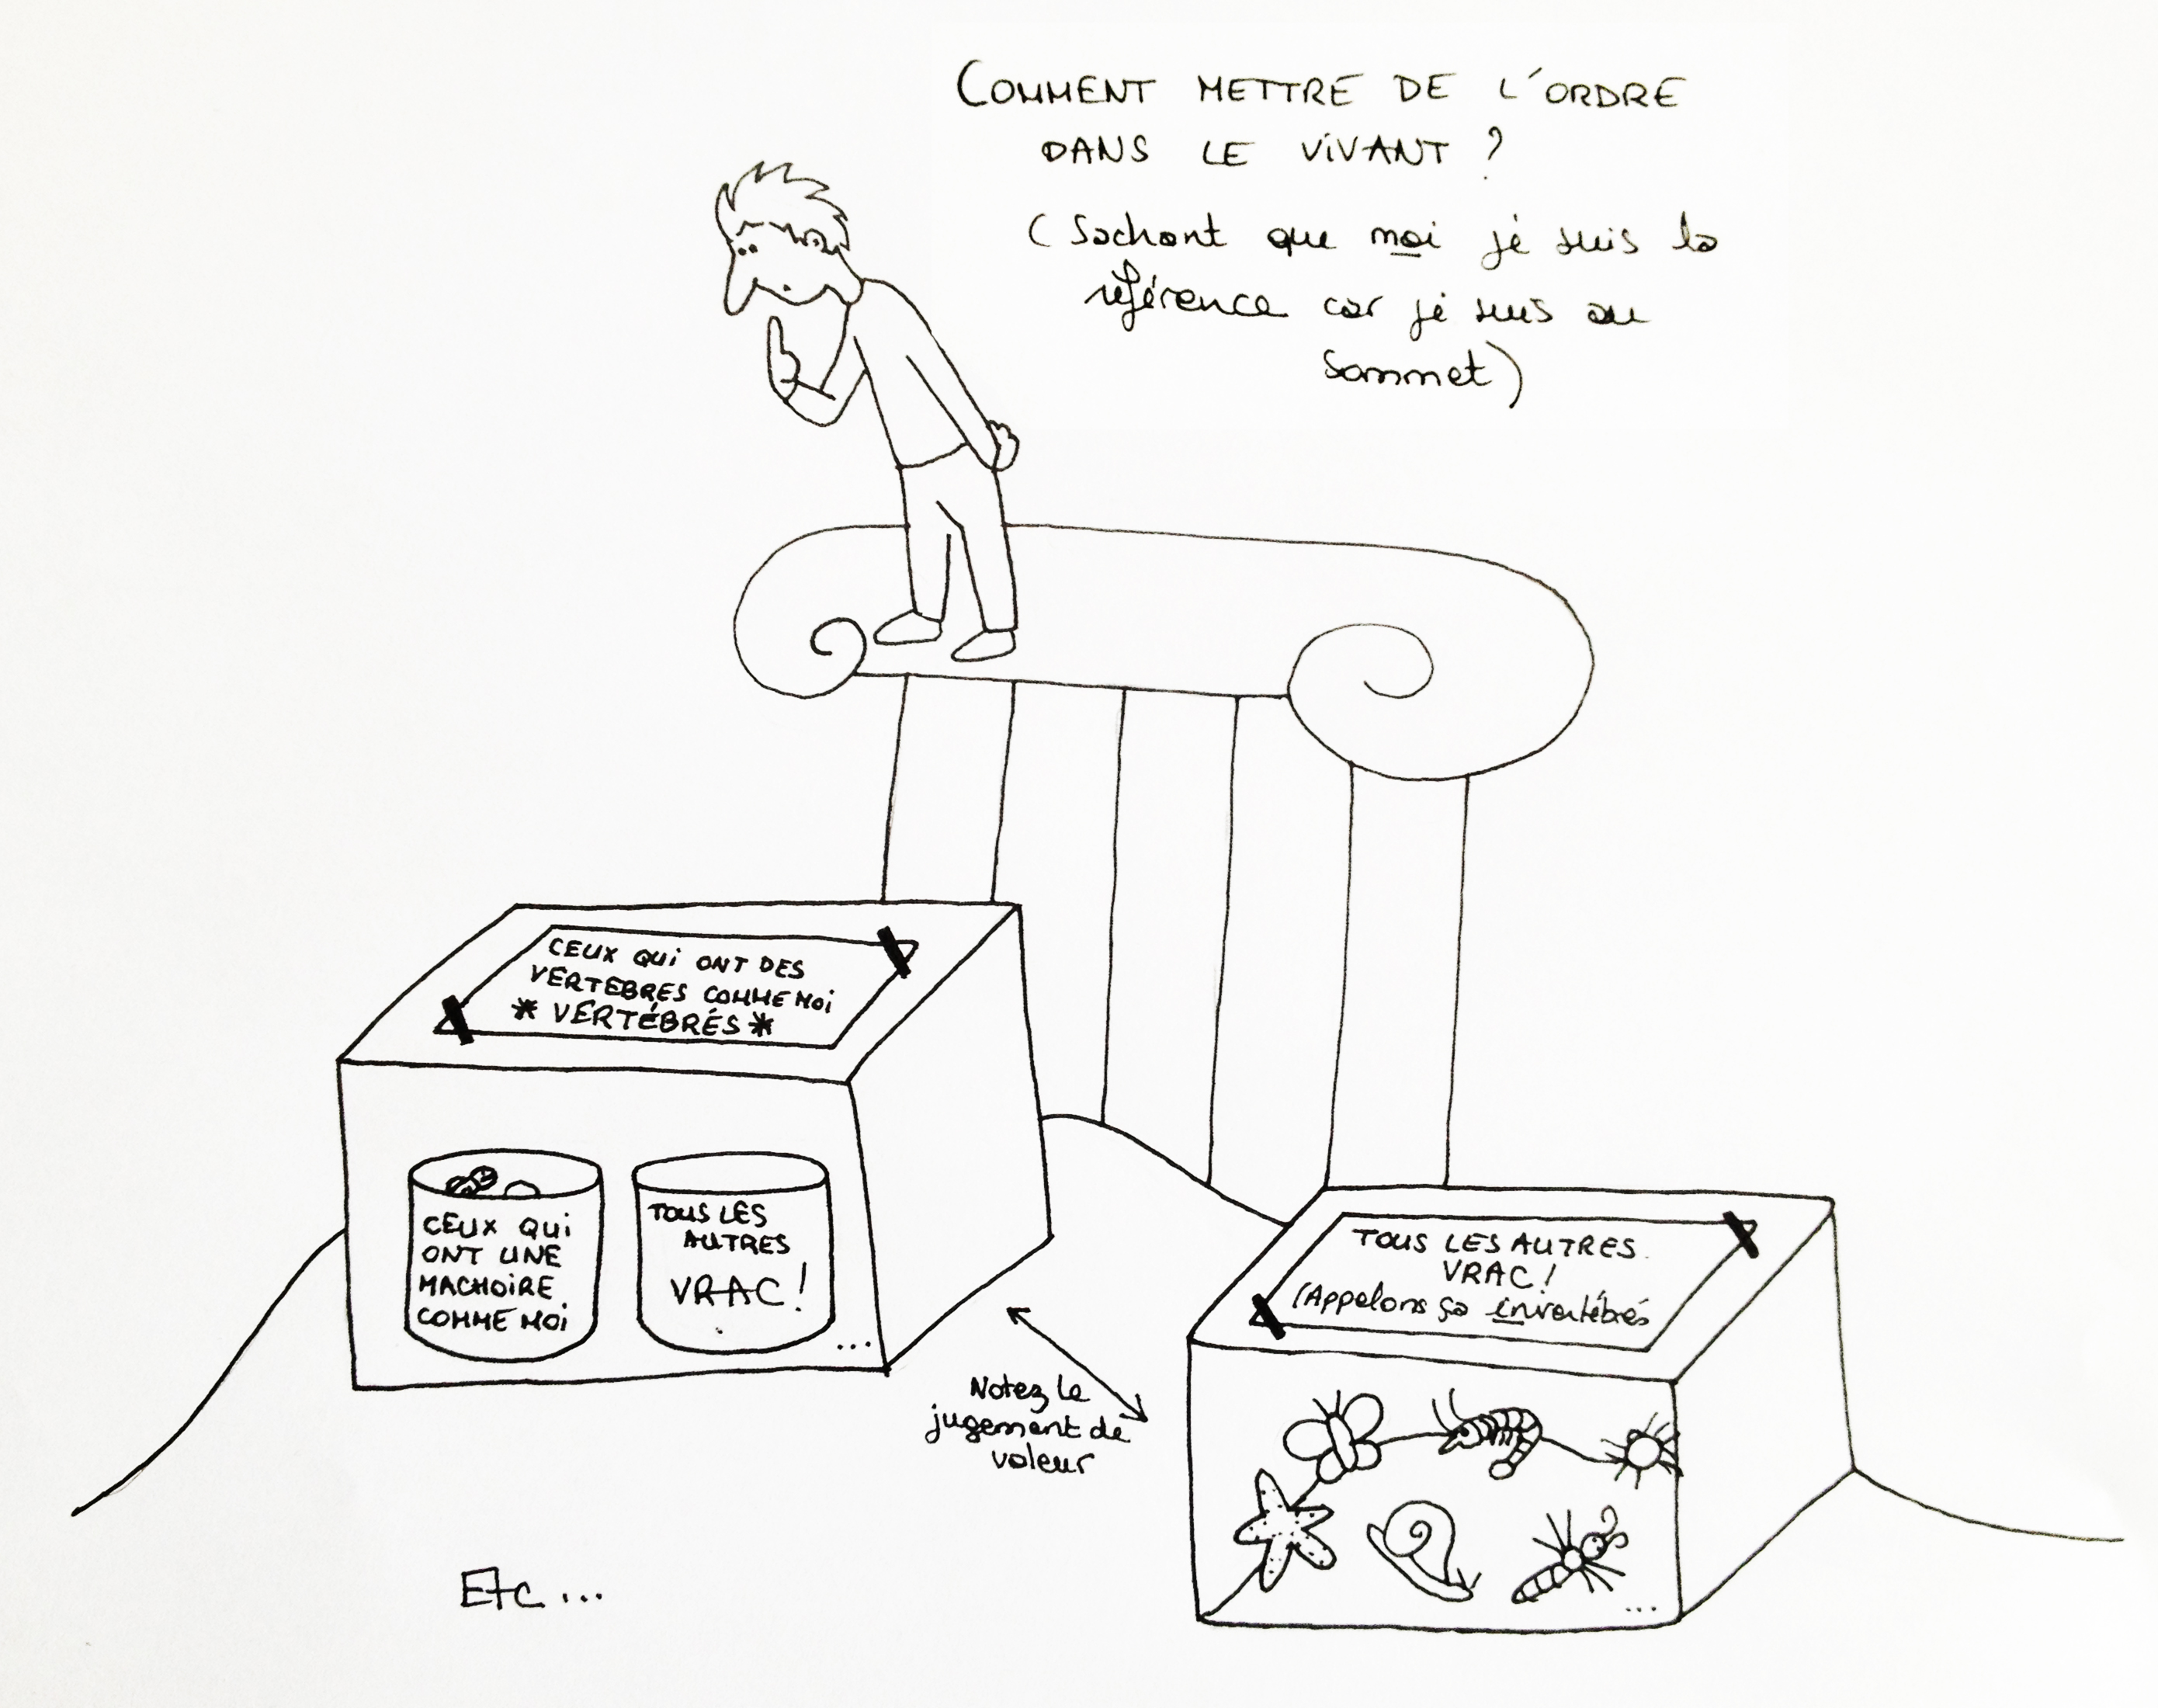 COMMENT METTRE DE L'ORDRE
DANS LE VIVANT ?
(Sachant que moi je suis la
référence car je suis au
sommet)
CEUX QUI ONT DES
VERTEBRES COMME MOI
* VERTÉBRÉS *
CEUX QUI
ONT UNE
MACHOIRE
COMME MOI
TOUS LES
AUTRES
VRAC !
...
Notez le
jugement de
valeur
TOUS LES AUTRES.
VRAC !
(Appelons ça invertébrés
...
Etc ...